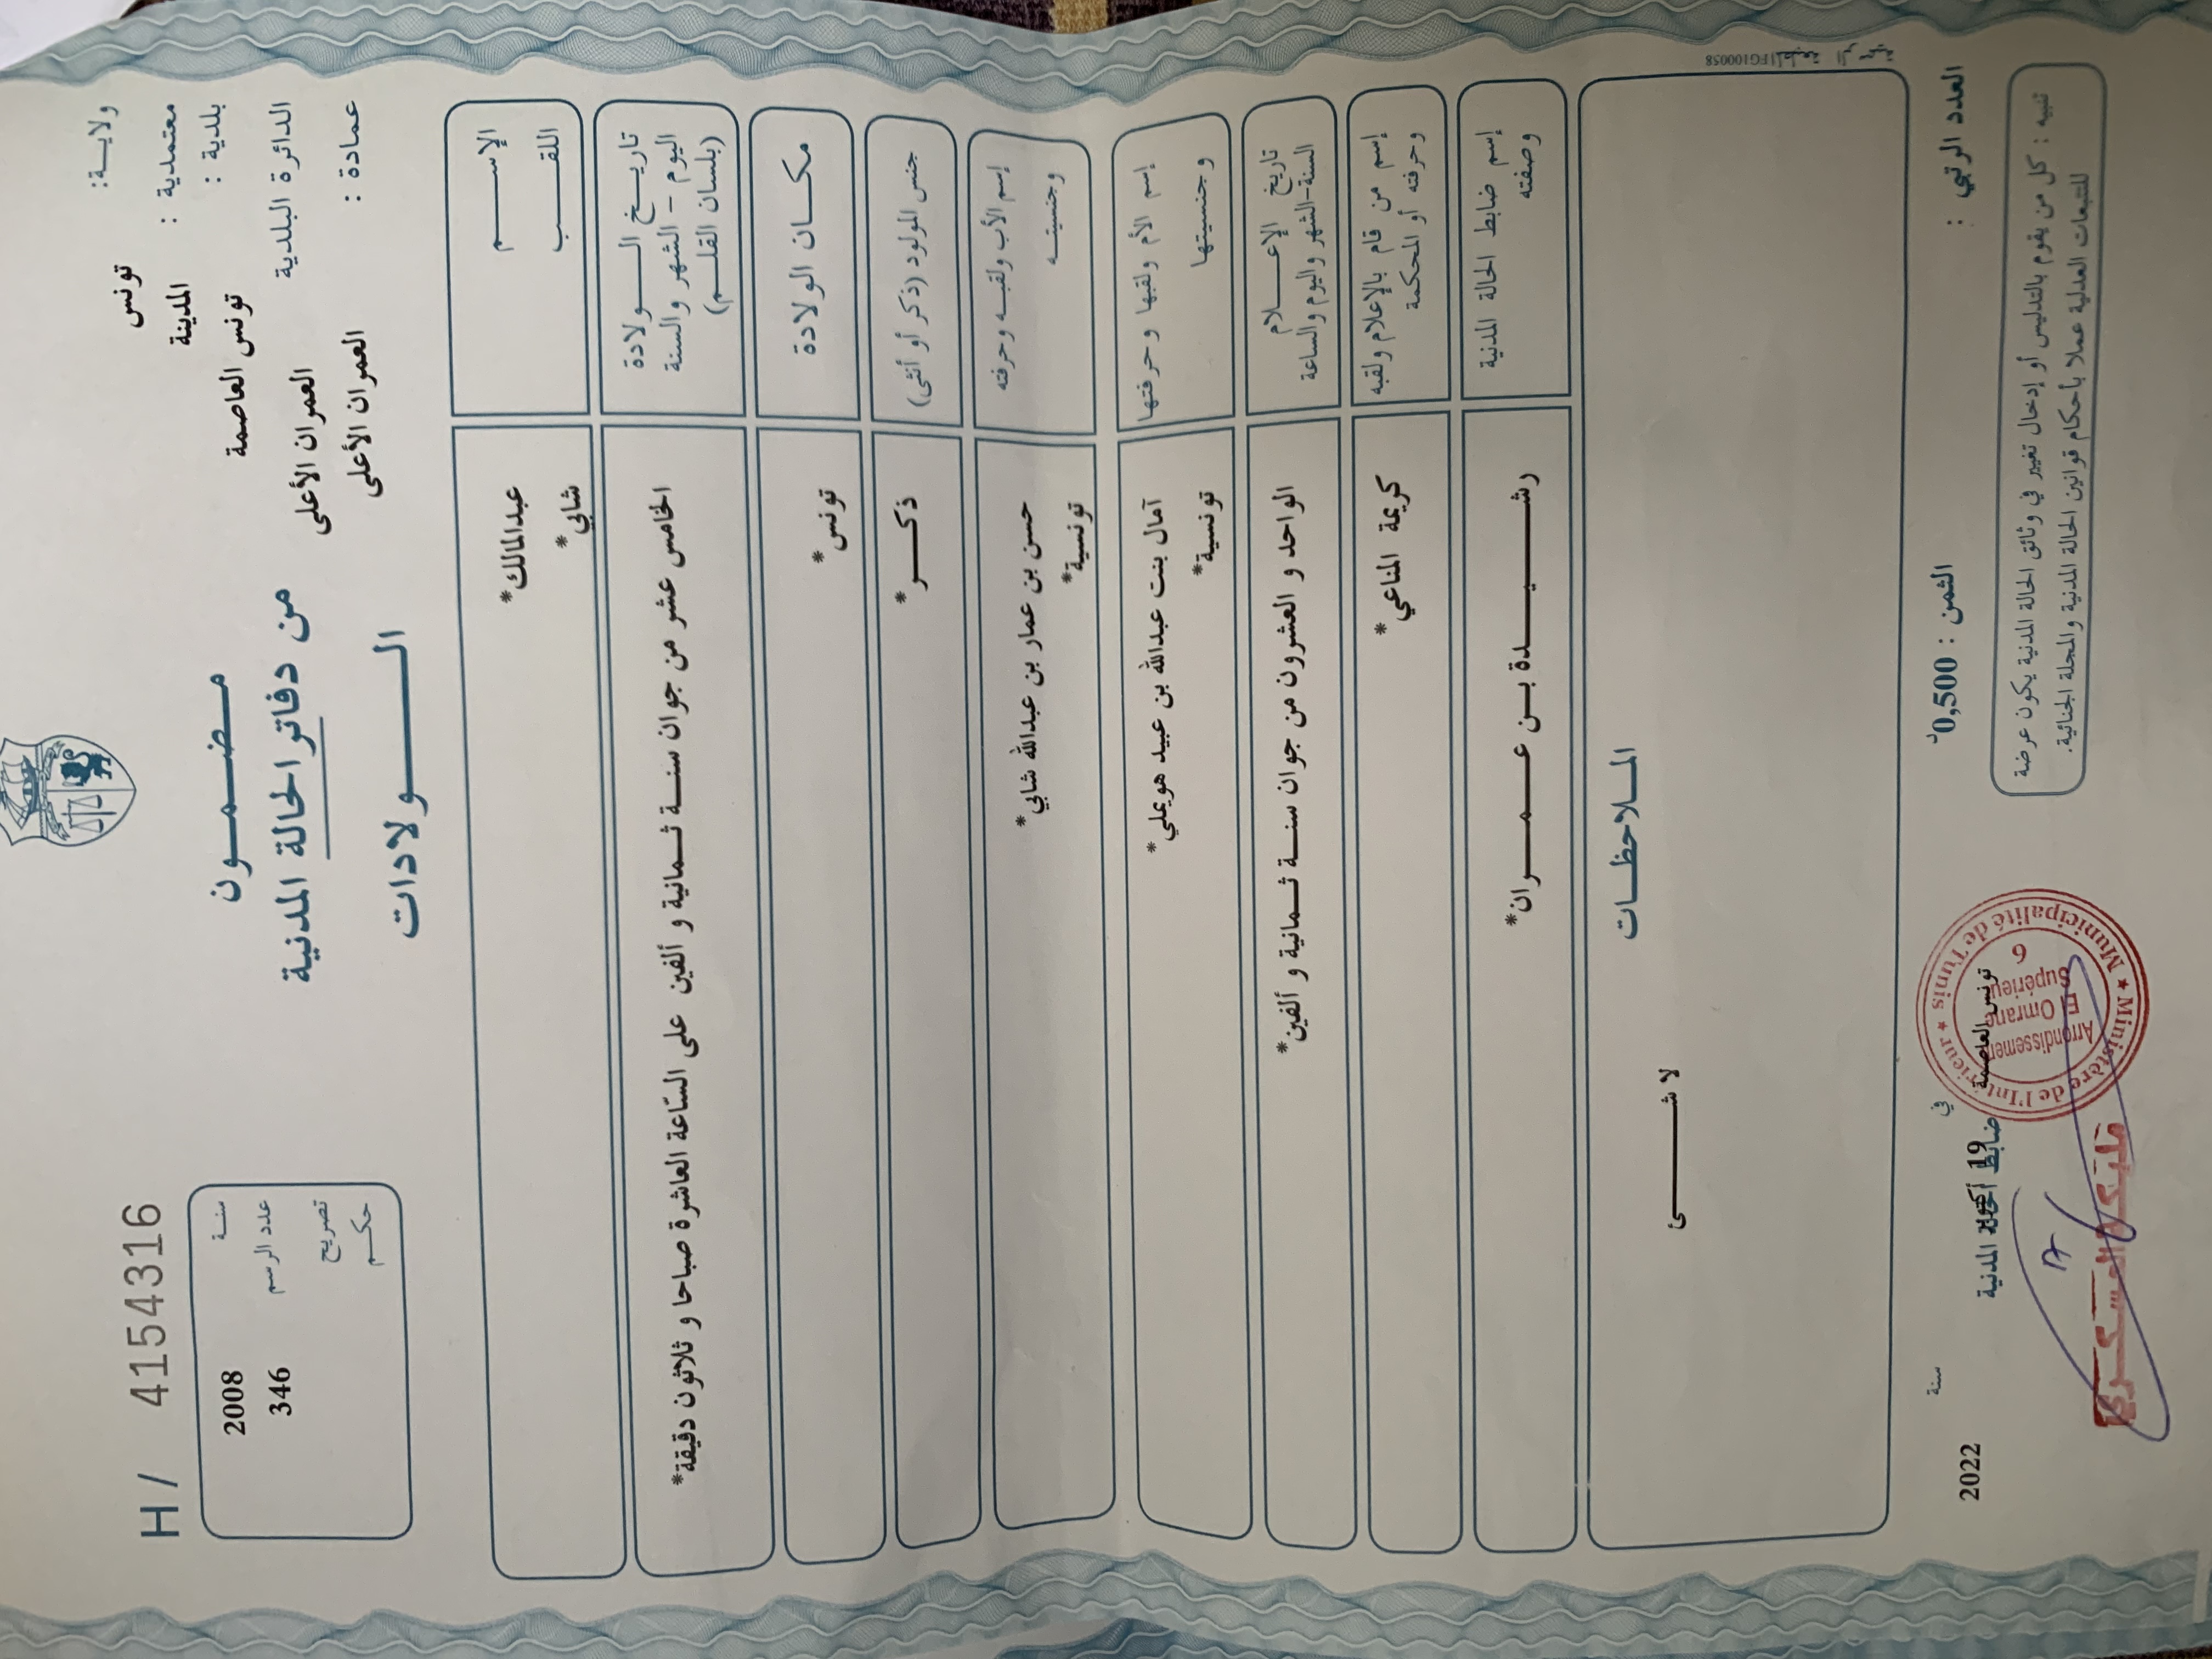 ولاية: تونس
معتمدية : المدينة
بلدية : تونس العاصمة
الدائرة البلدية العمران الأعلى
عمادة : العمران الأعلى
مضمون
من دفاتر الحالة المدنية
الولادات
H/ 4154316
سنة 2008
عدد الرسم 346
تصريح
حكم
الإسم عبدالمالك*
اللقب شابي*
تاريخ الولادة
اليوم - الشهر والسنة
(بلسان القلم)
الخامس عشر من جوان سنة ثمانية و ألفين على السّاعة العاشرة صباحا و ثلاثون دقيقة*
مكان الولادة تونس*
جنس المولود (ذكر أو أنثى) ذكر*
إسم الأب ولقبه وحرفته حسن بن عمار بن عبدالله شابي*
وجنسيته تونسية*
إسم الأم ولقبها وحرفتها آمال بنت عبدالله بن عبيد هويملي*
وجنسيتها تونسية*
تاريخ الإعلام
السنة-الشهر واليوم والساعة
الواحد و العشرون من جوان سنة ثمانية و ألفين*
إسم من قام بالإعلام ولقبه
وحرفته أو المحكمة
كريمة المناعي*
إسم ضابط الحالة المدنية
وصفته
رشيدة بن عمران*
الملاحظات
لا شئ
FG100058
العدد الرتبي :
الثمن : 0,500د
في تونس العاصمة 19 سنة 2022
ضابط الحالة المدنية
تنبيه : كل من يقوم بالتدليس أو إدخال تغيير في وثائق الحالة المدنية يكون عرضة
للتتبعات العدلية عملا بأحكام قوانين الحالة المدنية والمجلة الجنائية.
★ Ministère de l'Intérieur ★ Municipalité de Tunis
Arrondissement
El Omrane
Supérieur
6